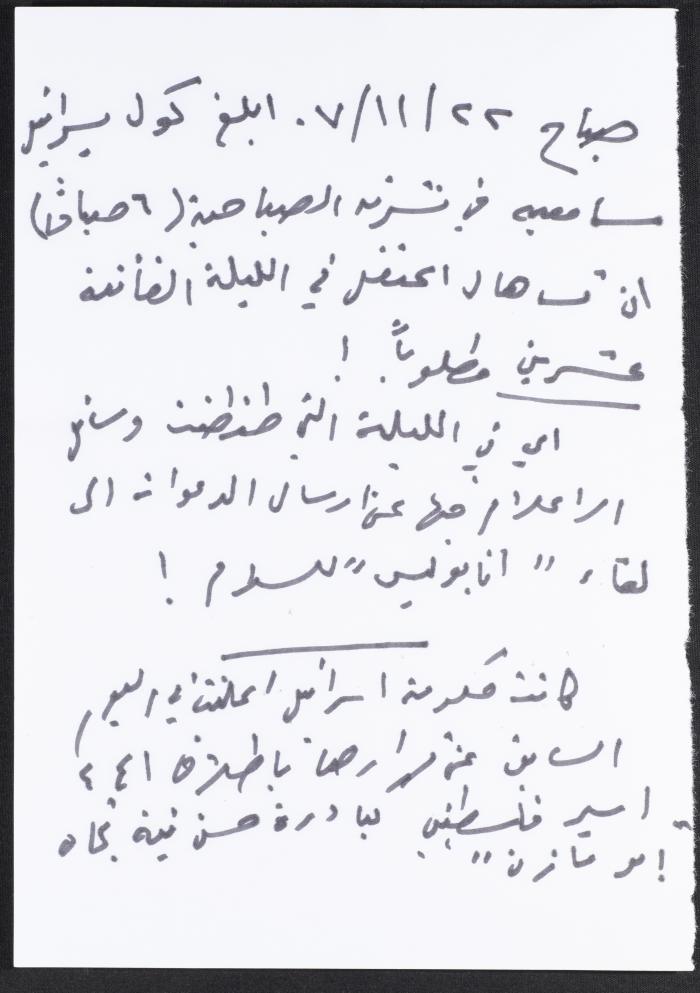 صباح ٢٢/١١/٠٧ ابلغ كول يسرائيل
سامعيه في نشرته الصباحية (٦ صباحًا)
ان تساهال اعتقل في الليلة الفائتة
عشرين مطلوباً !
اي في الليلة التي طنطنت وسائل
الاعلام فيها عن ارسال الدعوات الى
لقاء "انابوليس" للسلام !
كانت حكومة اسرائيل اعلنت في اليوم
السابق عن قرارها باطلاق ٤٤١
اسير فلسطيني كبادرة حسن نية تجاه
ابو مازن"